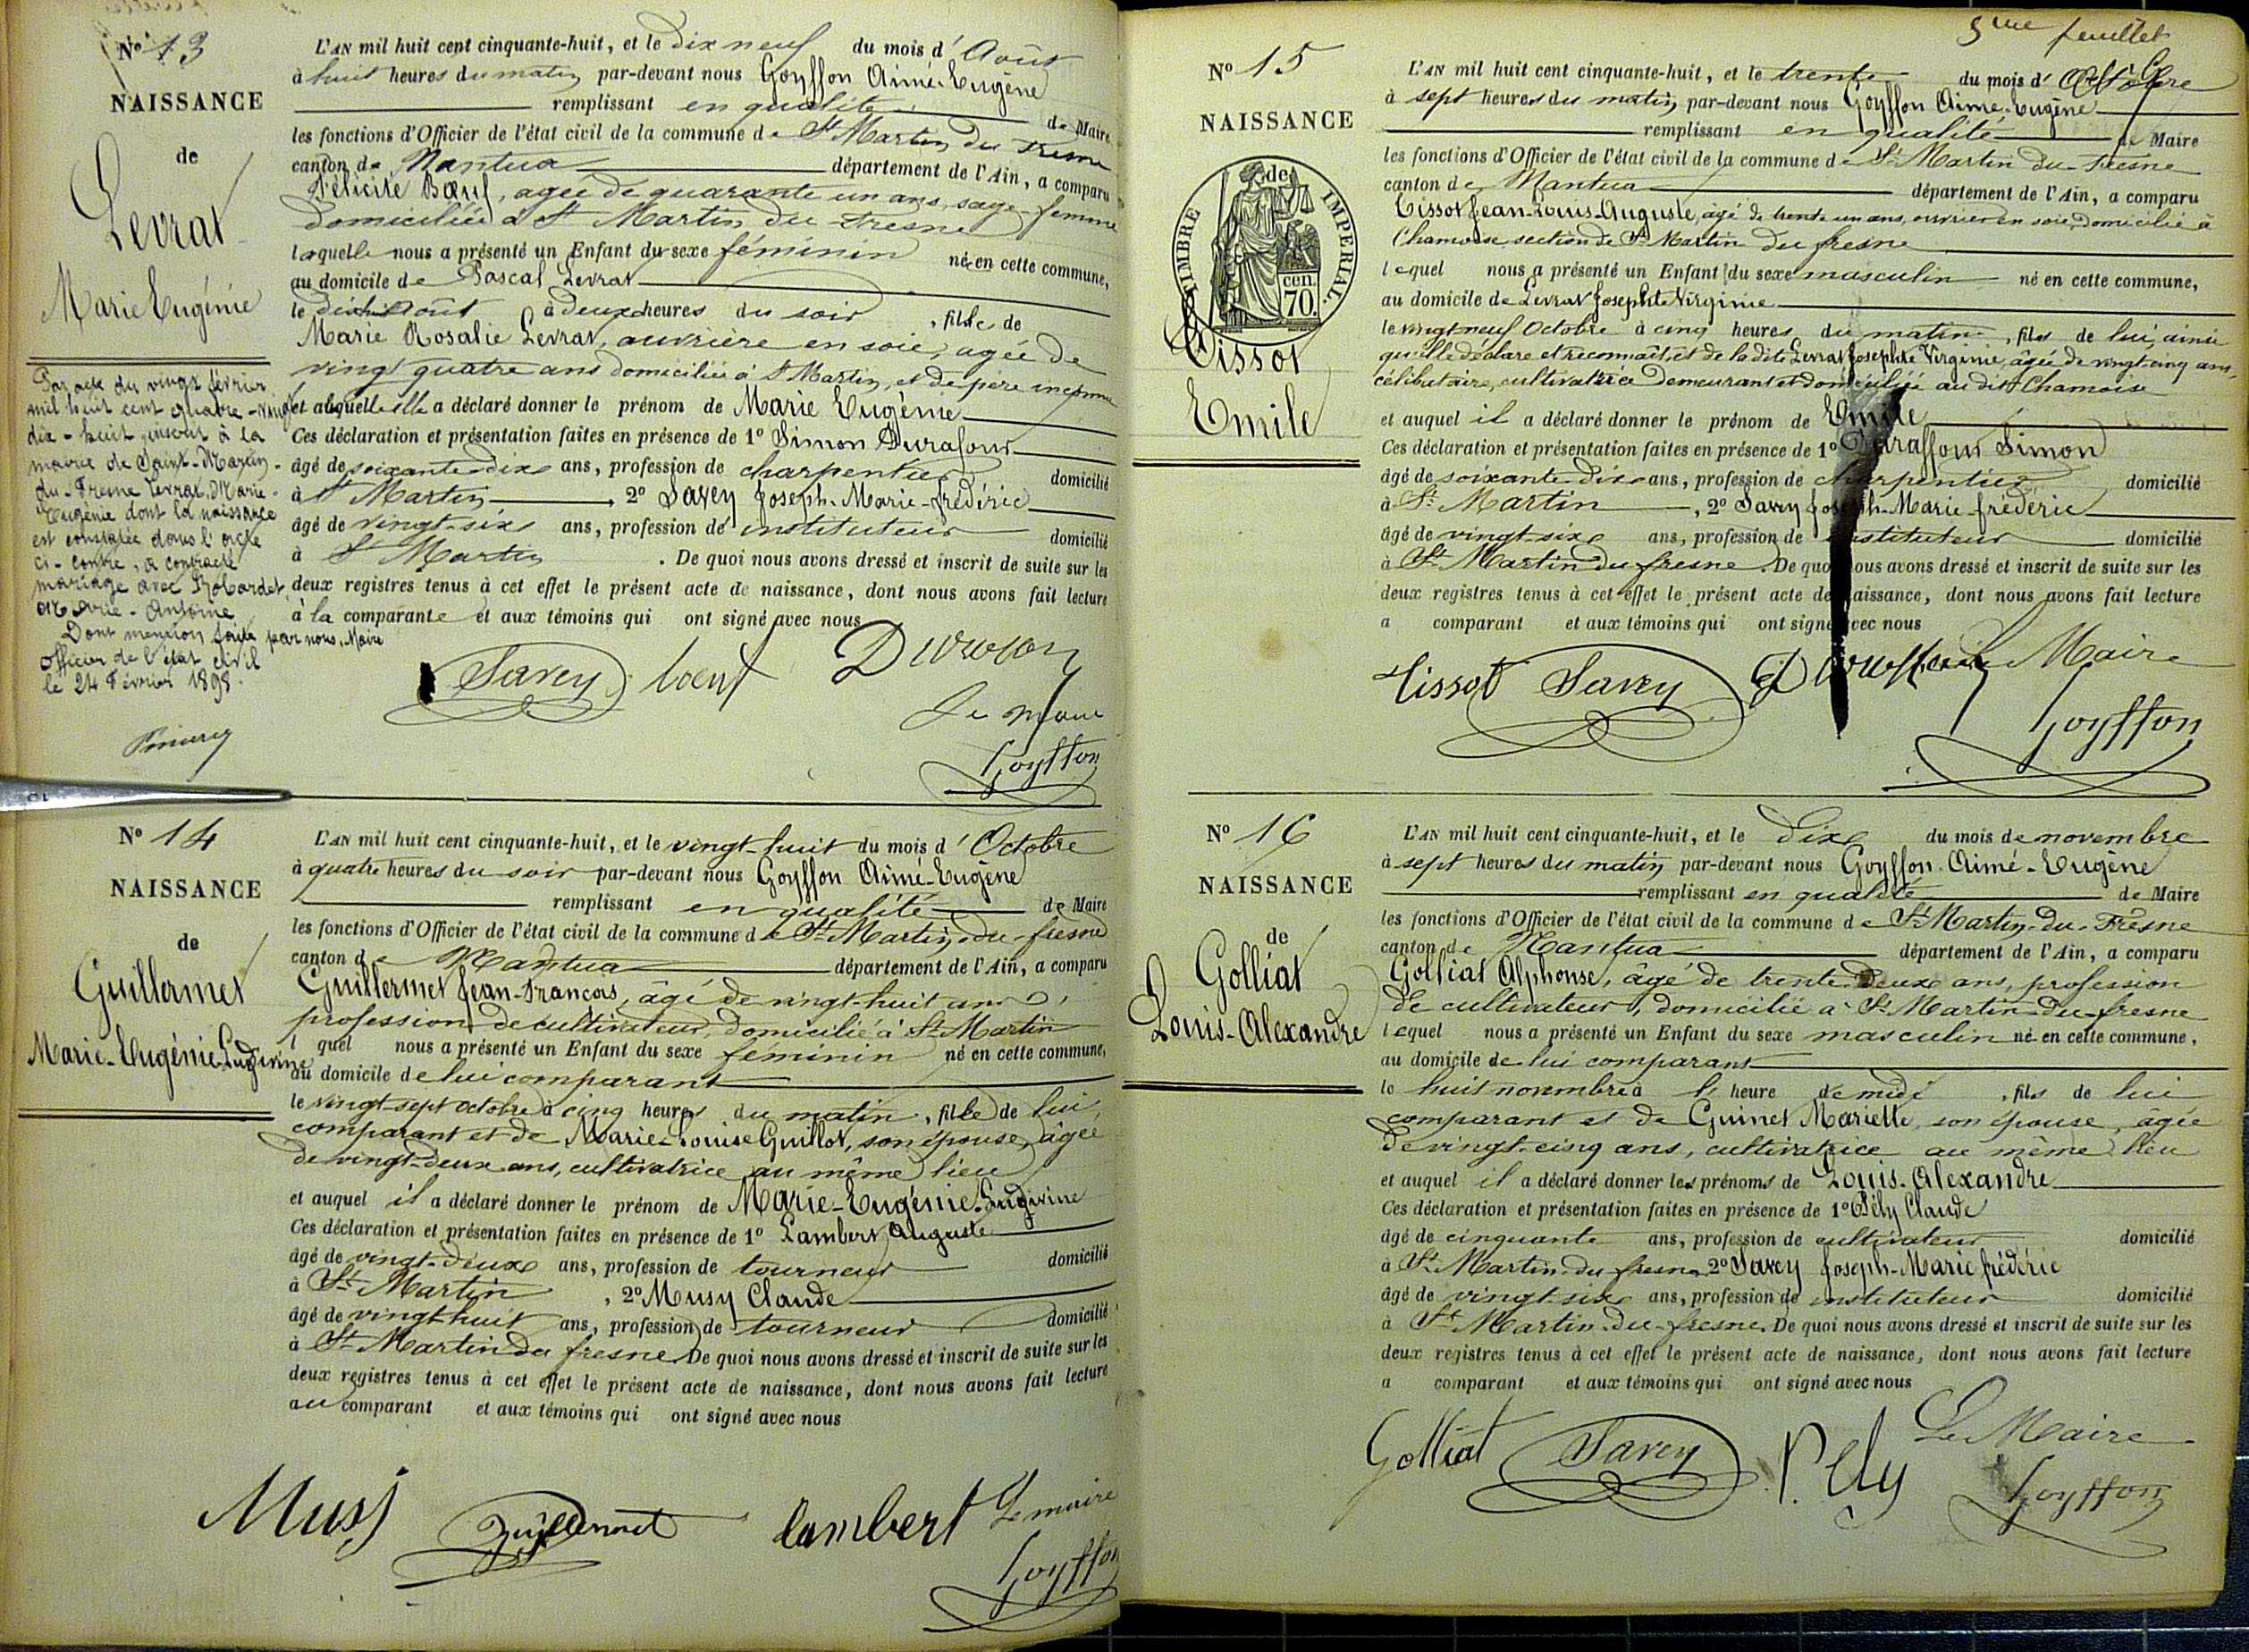 N° 13
NAISSANCE
de
Levrat
Marie Eugénie
Par acte du vingt février
mil huit cent quatre-vingt
dix-huit inscrit à la
mairie de Saint-Martin-
du-Fresne Levrat, Marie-
Eugénie dont la naissance
est constatée dans l'acte
ci-contre, a contracté
mariage avec
Marie-Antoine
Dont mention faite par nous, Maire
officier de l'état civil
le 24 Février 1898.
L'AN mil huit cent cinquante-huit, et le dix neuf du mois d'Août
à huit heures du matin par-devant nous Goyffon Aimé-Eugène
remplissant en qualité de Maire
les fonctions d'Officier de l'état civil de la commune de St Martin du Fresne
canton de Nantua département de l'Ain, a comparu
Félicité Bœuf, agée de quarante un ans, sage-femme
domiciliée à St Martin du Fresne
laquelle nous a présenté un Enfant du sexe féminin né en cette commune,
au domicile de Pascal Levrat
le dix huit Août à deux heures du soir, fille de
Marie Rosalie Levrat, ouvrière en soie, agée de
vingt quatre ans domiciliée à St Martin, et de père inconnu
et à laquelle elle a déclaré donner le prénom de Marie Eugénie
Ces déclaration et présentation faites en présence de 1° Simon Durafour
âgé de soixante-dix ans, profession de charpentier domicilié
à St Martin, 2° Savey Joseph-Marie-frédéric
âgé de vingt-six ans, profession de instituteur domicilié
à St Martin. De quoi nous avons dressé et inscrit de suite sur les
deux registres tenus à cet effet le présent acte de naissance, dont nous avons fait lecture
à la comparante et aux témoins qui ont signé avec nous
Savey bœuf Durafour
Le Maire
Goyffon
N° 14
NAISSANCE
de
Guillermet
Marie-Eugénie-Ludivine
L'AN mil huit cent cinquante-huit, et le vingt-huit du mois d'Octobre
à quatre heures du soir par-devant nous Goyffon Aimé-Eugène
remplissant en qualité de Maire
les fonctions d'Officier de l'état civil de la commune de St Martin-du-fresne
canton de Nantua département de l'Ain, a comparu
Guillermet Jean-francois, âgé de vingt-huit ans,
profession de cultivateur, domicilié à St Martin
l quel nous a présenté un Enfant du sexe féminin né en cette commune,
au domicile de lui comparant
le vingt-sept octobre à cinq heures du matin, fille de lui
comparant et de Marie-Louise Guillot, son épouse, âgée
de vingt-deux ans, cultivatrice au même lieu
et auquel il a déclaré donner le prénom de Marie-Eugénie-Ludivine
Ces déclaration et présentation faites en présence de 1° Lambert Auguste
âgé de vingt-deux ans, profession de tourneur domicilié
à St Martin, 2° Musy Claude
âgé de vingt-huit ans, profession de tourneur domicilié
à St Martin du fresne. De quoi nous avons dressé et inscrit de suite sur les
deux registres tenus à cet effet le présent acte de naissance, dont nous avons fait lecture
au comparant et aux témoins qui ont signé avec nous
Musy Guillermet Lambert Le maire
Goyffon
5me feuillet
N° 15
NAISSANCE
de
TIMBRE IMPERIAL.
70 cen.
Tissot
Emile
L'AN mil huit cent cinquante-huit, et le trente du mois d'Octobre
à sept heures du matin par-devant nous Goyffon Aimé-Eugène
remplissant en qualité de Maire
les fonctions d'Officier de l'état civil de la commune de St Martin du-fresne
canton de Nantua département de l'Ain, a comparu
Tissot Jean-Louis-Auguste, âgé de trente un ans, ouvrier en soie, domicilié à
Chamoise section de St Martin du fresne
lequel nous a présenté un Enfant du sexe masculin né en cette commune,
au domicile de Levrat Josephte Virginie
le vingt neuf Octobre à cinq heures du matin, fils de lui, ainsi
qu'il le déclare et reconnaît, et de la dite Levrat Josephte Virginie, âgée de vingt-cinq ans,
célibataire, cultivatrice demeurant et domiciliée au dit Chamoise
et auquel il a déclaré donner le prénom de Emile
Ces déclaration et présentation faites en présence de 1° Duraffour Simon
âgé de soixante-dix ans, profession de charpentier domicilié
à St Martin, 2° Savey Joseph-Marie-frédéric
âgé de vingt-six ans, profession de instituteur domicilié
à St Martin du fresne. De quoi nous avons dressé et inscrit de suite sur les
deux registres tenus à cet effet le présent acte de naissance, dont nous avons fait lecture
a comparant et aux témoins qui ont signé avec nous
Tissot Savey Durafour Le Maire
Goyffon
N° 16
NAISSANCE
de
Golliat
Louis-Alexandre
L'AN mil huit cent cinquante-huit, et le Dix du mois de novembre
à sept heures du matin par-devant nous Goyffon Aimé-Eugène
remplissant en qualité de Maire
les fonctions d'Officier de l'état civil de la commune de St Martin-du-Fresne
canton de Nantua département de l'Ain, a comparu
Golliat Alphonse, âgé de trente-deux ans, profession
de cultivateur, domicilié à St Martin-du-fresne
lequel nous a présenté un Enfant du sexe masculin né en cette commune,
au domicile de lui comparant
le huit novembre à l' heure de midi, fils de lui
comparant et de Guinet Mariette, son épouse, âgée
de vingt-cinq ans, cultivatrice au même lieu
et auquel il a déclaré donner les prénoms de Louis-Alexandre
Ces déclaration et présentation faites en présence de 1° Pély Claude
âgé de cinquante ans, profession de cultivateur domicilié
à St Martin-du-fresne 2° Savey Joseph-Marie frédéric
âgé de vingt-six ans, profession de instituteur domicilié
à St Martin-du-fresne. De quoi nous avons dressé et inscrit de suite sur les
deux registres tenus à cet effet le présent acte de naissance, dont nous avons fait lecture
a comparant et aux témoins qui ont signé avec nous
Golliat Savey P. Ely Le Maire
Goyffon